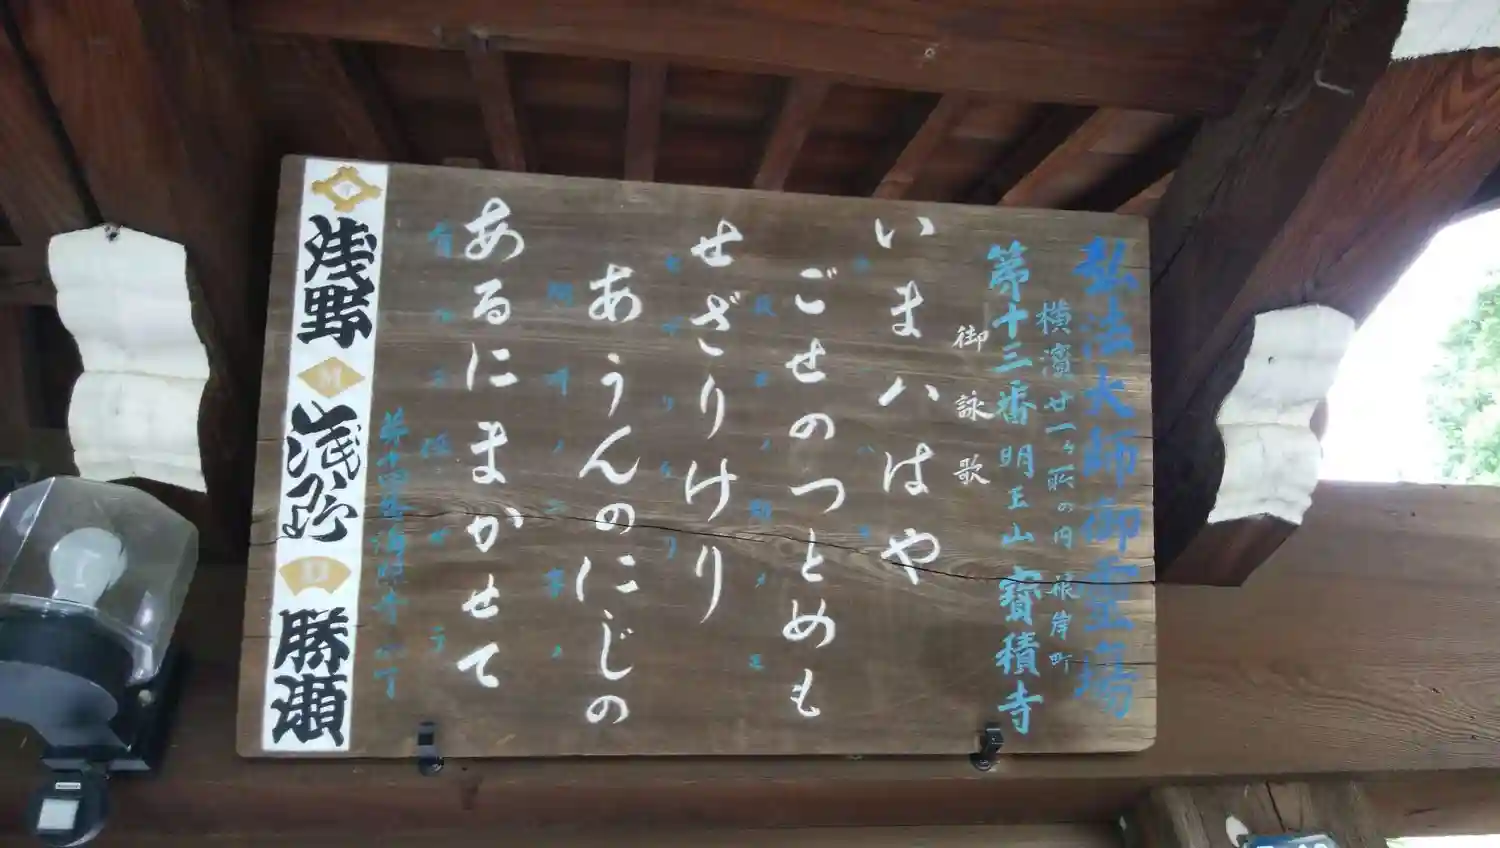 弘法大師御霊場
横濱廿一ヶ所の内 根岸町
第十三番 明王山 寶積寺
御詠歌
いまハはや
ごせのつとめも
せざりけり
あうんのにじの
あるにまかせて
第十四番海照寺八丁
浅野
浅弥
勝瀬